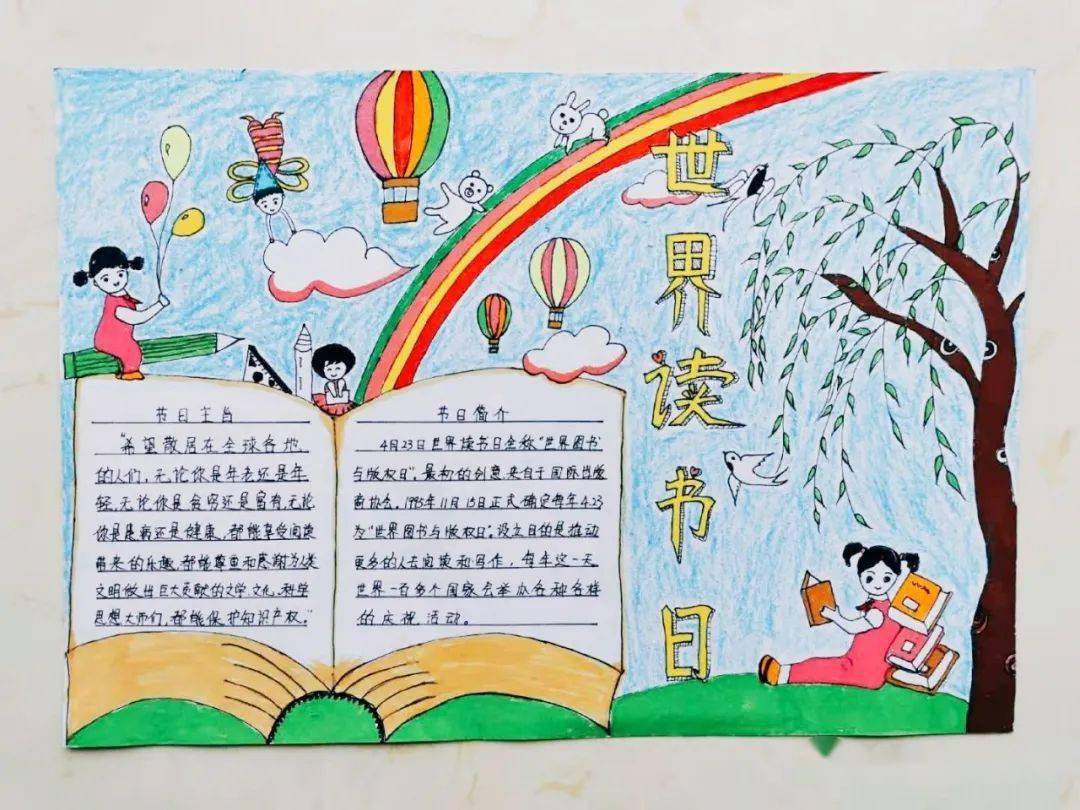 世界读书日
节日主旨
“希望散居在全球各地
的人们，无论你是年老还是年
轻，无论你是贫穷还是富有，无论
你是患病还是健康，都能享受阅读
带来的乐趣，都能尊重和感谢为人类
文明做出巨大贡献的文学、文化、科学
思想大师们，都能保护知识产权。”
节日简介
4月23日世界读书日全称“世界图书
与版权日”，最初的创意来自于国际出版
商协会。1995年11月15日正式确定每年4.23
为“世界图书与版权日”，设立目的是推动
更多的人去阅读和写作，每年这一天
世界一百多个国家会举办各种各样
的庆祝活动。